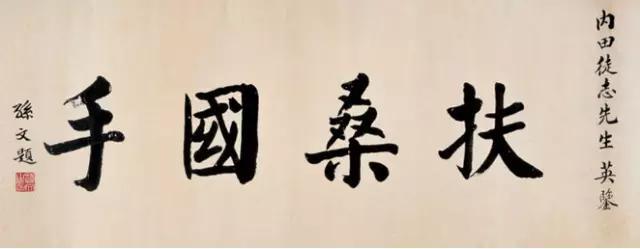 内田徒志先生英鑒
扶桑國手
孫文題